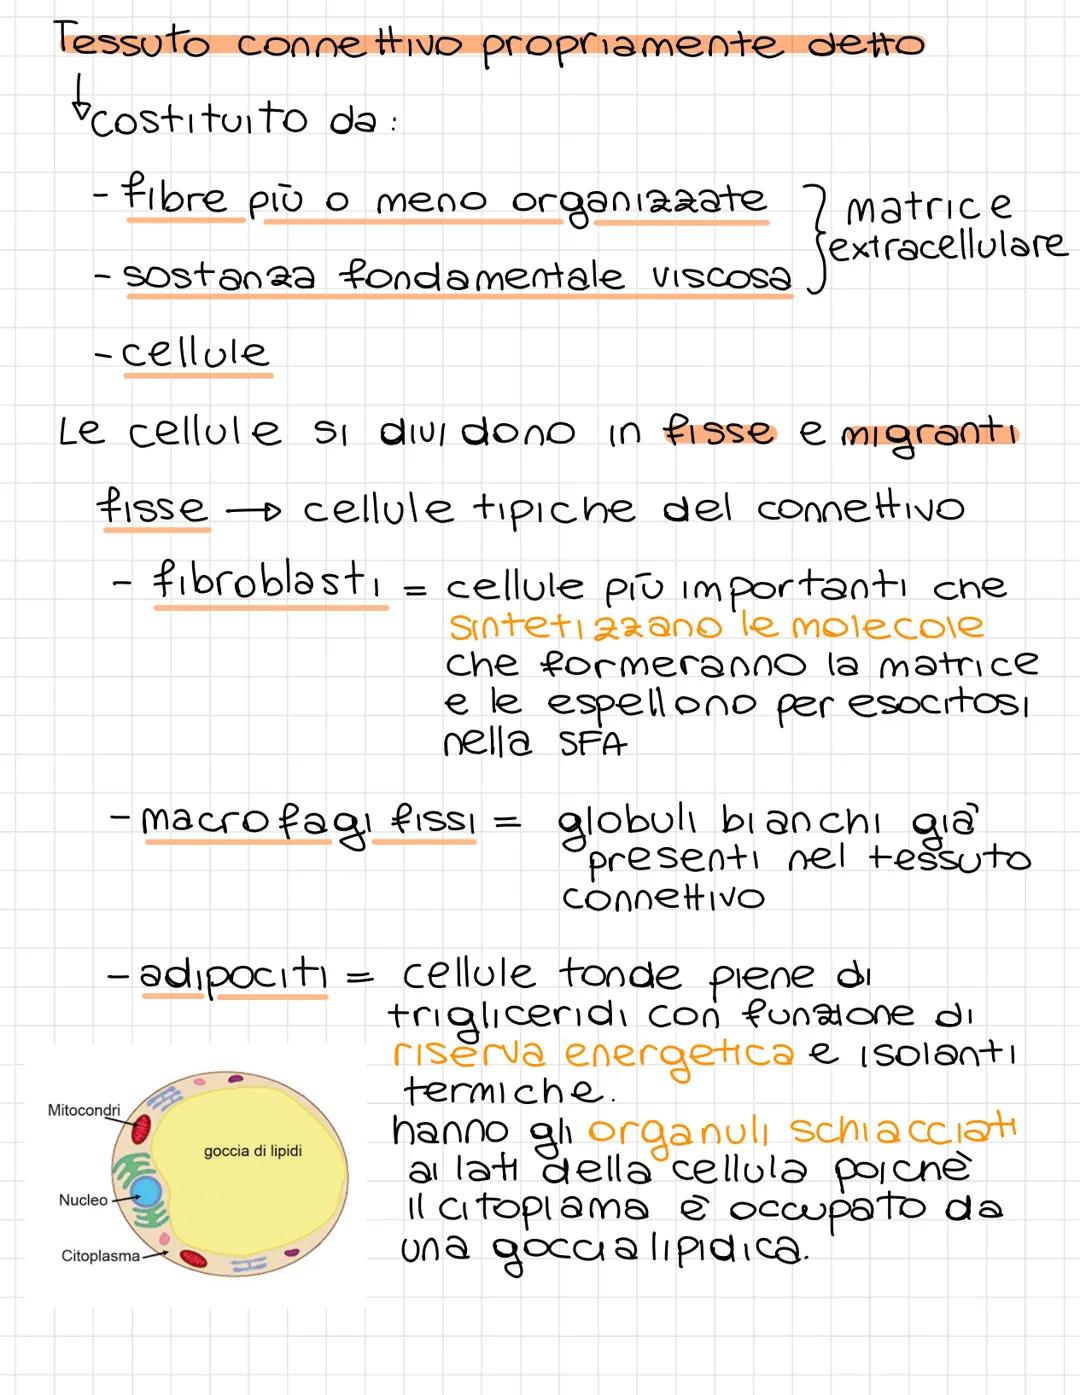 Tessuto connettivo propriamente detto
costituito da:
- fibre più o meno organizzate
- sostanza fondamentale viscosa
matrice
extracellulare
- cellule
Le cellule si dividono in fisse e migranti
fisse → cellule tipiche del connettivo
- fibroblasti = cellule più importanti che
sintetizzano le molecole
che formeranno la matrice
e le espellono per esocitosi
nella SFA
- macrofagi fissi = globuli bianchi già
presenti nel tessuto
connettivo
- adipociti = cellule tonde piene di
trigliceridi con funzione di
riserva energetica e isolanti
termiche.
hanno gli organuli schiacciati
ai lati della cellula poichè
il citoplama è occupato da
una goccia lipidica.
Mitocondri
goccia di lipidi
Nucleo
Citoplasma